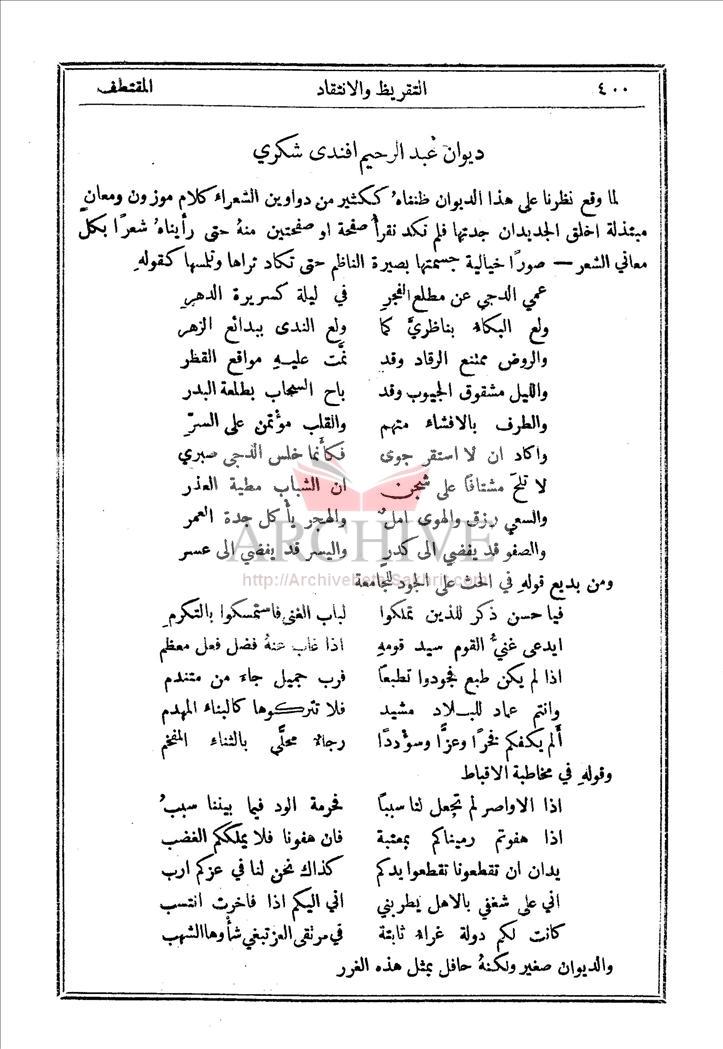 ٤٠٠ التقريظ والانتقاد المقتطف
ديوان عبد الرحيم افندي شكري
لما وقع نظرنا على هذا الديوان ظنناهُ ككثير من دواوين الشعراء كلام موزون ومعانٍ
مبتذلة اخلق الجديدان جدتها فلم نكد نقرأ صفحة او صفحتين منهُ حتى رأيناهُ شعرًا بكلّ
معاني الشعر — صورًا خيالية جسمتها بصيرة الناظم حتى تكاد تراها وتلمسها كقولهِ
عمي الدجي عن مطلع الفجرِ في ليلة كسريرة الدهرِ
ولع البكاءُ بناظريَّ كما ولع الندى ببدائع الزهر
والروض ممتنع الرقاد وقد نمَّت عليهِ مواقع القطر
والليل مشقوق الجيوب وقد باح السحاب بطلعة البدر
والطرف بالافشاء متهم والقلب مؤتمن على السرِّ
واكاد ان لا استقر جوى فكأنما خلس الدجي صبري
لا تلحَ مشتاقًا على شجن ان الشباب مطية العذر
والسعي رزق والهوى املٌ والهجر يأكل جدة العمر
والصفو قد يفضي الى كدرٍ واليسر قد يفضي الى عسر
ARCHIVE
http://Archivebeta.Sakhrit.com
ومن بديع قولهِ في الحث على الجود للجامعة
فيا حسن ذكر للذين تملكوا لباب الغنى فاستمسكوا بالتكرمِ
ايدعى غنيُّ القوم سيد قومهِ اذا غاب عنهُ فضل فعل معظم
اذا لم يكن طبع فجودوا تطبعًا فرب جميل جاء من متندم
وانتم عماد للبلاد مشيد فلا تتركوها كالبناء المهدم
ألم يكفكم فخرًا وعزًّا وسؤددًا رجاءٌ محلَّى بالثناء المفخم
وقولهِ في مخاطبة الاقباط
اذا الاواصر لم تجعل لنا سببًا فحرمة الود فيما بيننا سببُ
اذا هفوتم رميناكم بمعتبة فان هفونا فلا يملككم الغضب
يدان ان تقطعونا تقطعوا يدكم كذاك نحن لنا في عزكم ارب
اني على شغفي بالاهل يطربني اني اليكم اذا فاخرت انتسب
كانت لكم دولة غراء ثابتة في مرتقى العز تبغي شأوها الشهب
والديوان صغير ولكنهُ حافل بمثل هذه الغرر